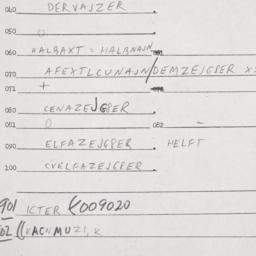 040 DERVAJZER
050
060 HALBAXT = HALBNAJN
070 AFEXTLCUNAJN/DEMZEJGPER X
071 +
080 CENAZEJGPER
081 0 082 –
090 ELFAZEJGPER HELFT
100 CVELFAZEJGPER
901 ICTER 009020
02